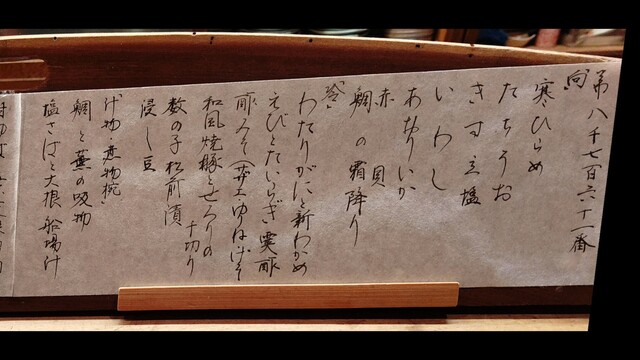 第八千七百六十一番
向
寒ひらめ
たちうお
きす 立塩
いわし
あおりいか
赤貝
鯛の霜降り
冷
わたりがにと新わかめ
えびとたいらぎ 黄味酢
酢みそ
和風焼豚とせろりの
千切り
数の子松前漬
浸し豆
汁物・煮物椀
鯛と蕪の吸物
塩さばと大根 船場汁